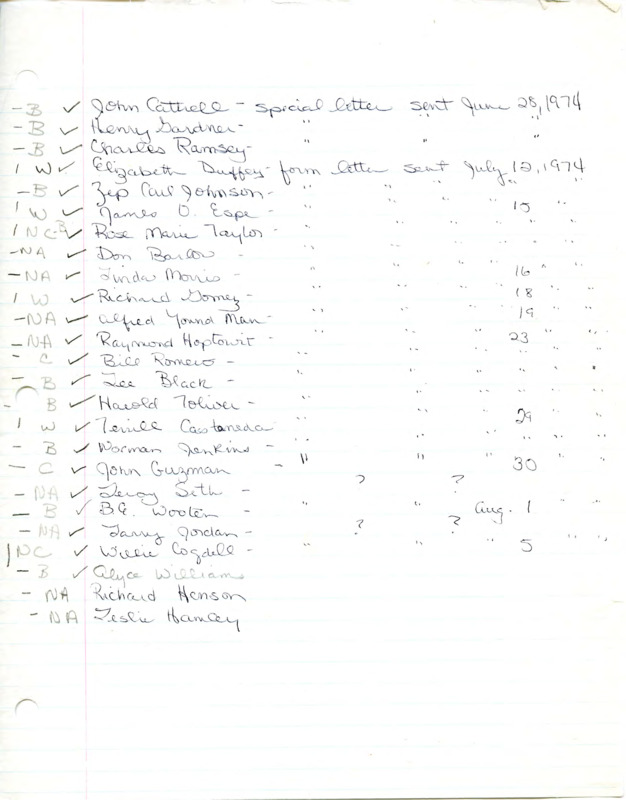 – B ✓ John Cattrell – special letter sent June 28, 1974
– B ✓ Henry Gardner – " " "
– B ✓ Charles Ramsey – " " "
1 W ✓ Elizabeth Duffey – form letter sent July 12, 1974
– B ✓ Zep Carl Johnson – " " " " "
1 W ✓ James O. Espe – " " " 15 " "
1 NC-B ✓ Rose Marie Taylor – " " " " " "
– NA ✓ Don Barlow – " " " " " "
– NA ✓ Linda Morris – " " " 16 " "
1 W ✓ Richard Gomez – " " " 18 " "
– NA ✓ Alfred Yound Man – " " " 19 " "
– NA ✓ Raymond Hoptowit – " " " 23 " "
– C ✓ Bill Romero – " " " " " "
– B ✓ Lee Black – " " " " " "
– B ✓ Harold Toliver – " " " " " "
1 W ✓ Castaneda " " " 29 " "
– B ✓ Norman Jenkins – " " " " " "
– C ✓ John Guzman – " " " 30 " "
– NA ✓ Leroy Seth – ? ?
– B ✓ B.G. Wooten – " " Aug. 1 " "
– NA ✓ Larry Jordan – ? ?
1 NC ✓ Willie Cogdell – " " " 5 " "
– B ✓ Alyce Williams
– NA Richard Henson
– NA Leslie Hamley